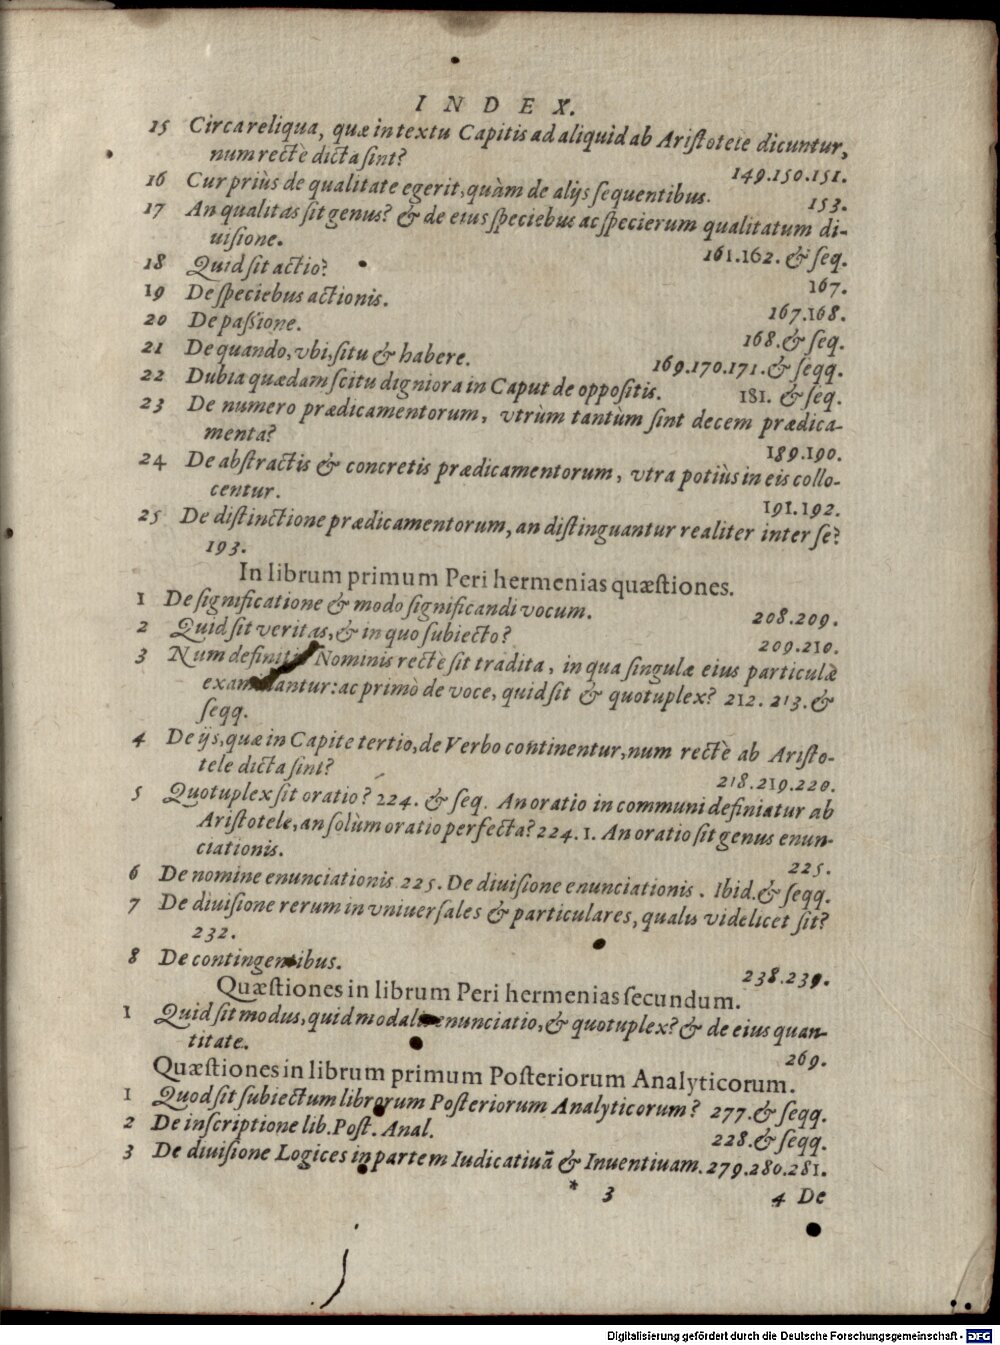 INDEX.
15 Circa reliqua, quæ in textu Capitis ad aliquid ab Aristotele dicuntur,
num rectè dicta sint? 149.150.151.
16 Cur priùs de qualitate egerit, quàm de alijs sequentibus. 153.
17 An qualitas sit genus? & de eius speciebus ac specierum qualitatum di-
uisione. 161.162. & seq.
18 Quid sit actio? 167.
19 De speciebus actionis. 167.168.
20 De passione. 168. & seq.
21 De quando, vbi, situ & habere. 169.170.171. & seqq.
22 Dubia quædam scitu digniora in Caput de oppositis. 181. & seq.
23 De numero prædicamentorum, vtrùm tantùm sint decem prædica-
menta? 189.190.
24 De abstractis & concretis prædicamentorum, vtra potiùs in eis collo-
centur. 191.192.
25 De distinctione prædicamentorum, an distinguantur realiter inter se?
193.
In librum primum Peri hermenias quæstiones.
1 De significatione & modo significandi vocum. 208.209.
2 Quid sit veritas, & in quo subiecto? 209.210.
3 Num definitio Nominis rectè sit tradita, in qua singulæ eius particulæ
examinantur: ac primò de voce, quid sit & quotuplex? 212. 213. &
seqq.
4 De ijs, quæ in Capite tertio, de Verbo continentur, num rectè ab Aristo-
tele dicta sint? 218.219.220.
5 Quotuplex sit oratio? 224. & seq. An oratio in communi definiatur ab
Aristotele, an solùm oratio perfecta? 224.1. An oratio sit genus enun-
ciationis. 225.
6 De nomine enunciationis 225. De diuisione enunciationis. Ibid. & seqq.
7 De diuisione rerum in vniuersales & particulares, qualis videlicet sit?
232.
8 De contingentibus. 238.239.
Quæstiones in librum Peri hermenias secundum.
1 Quid sit modus, quid modalis enunciatio, & quotuplex? & de eius quan-
titate. 269.
Quæstiones in librum primum Posteriorum Analyticorum.
1 Quod sit subiectum librorum Posteriorum Analyticorum? 277. & seqq.
2 De inscriptione lib. Post. Anal. 228. & seqq.
3 De diuisione Logices in partem Iudicatiuã & Inuentiuam. 279.280.281.
* 3 4 De
Digitalisierung gefördert durch die Deutsche Forschungsgemeinschaft - DFG